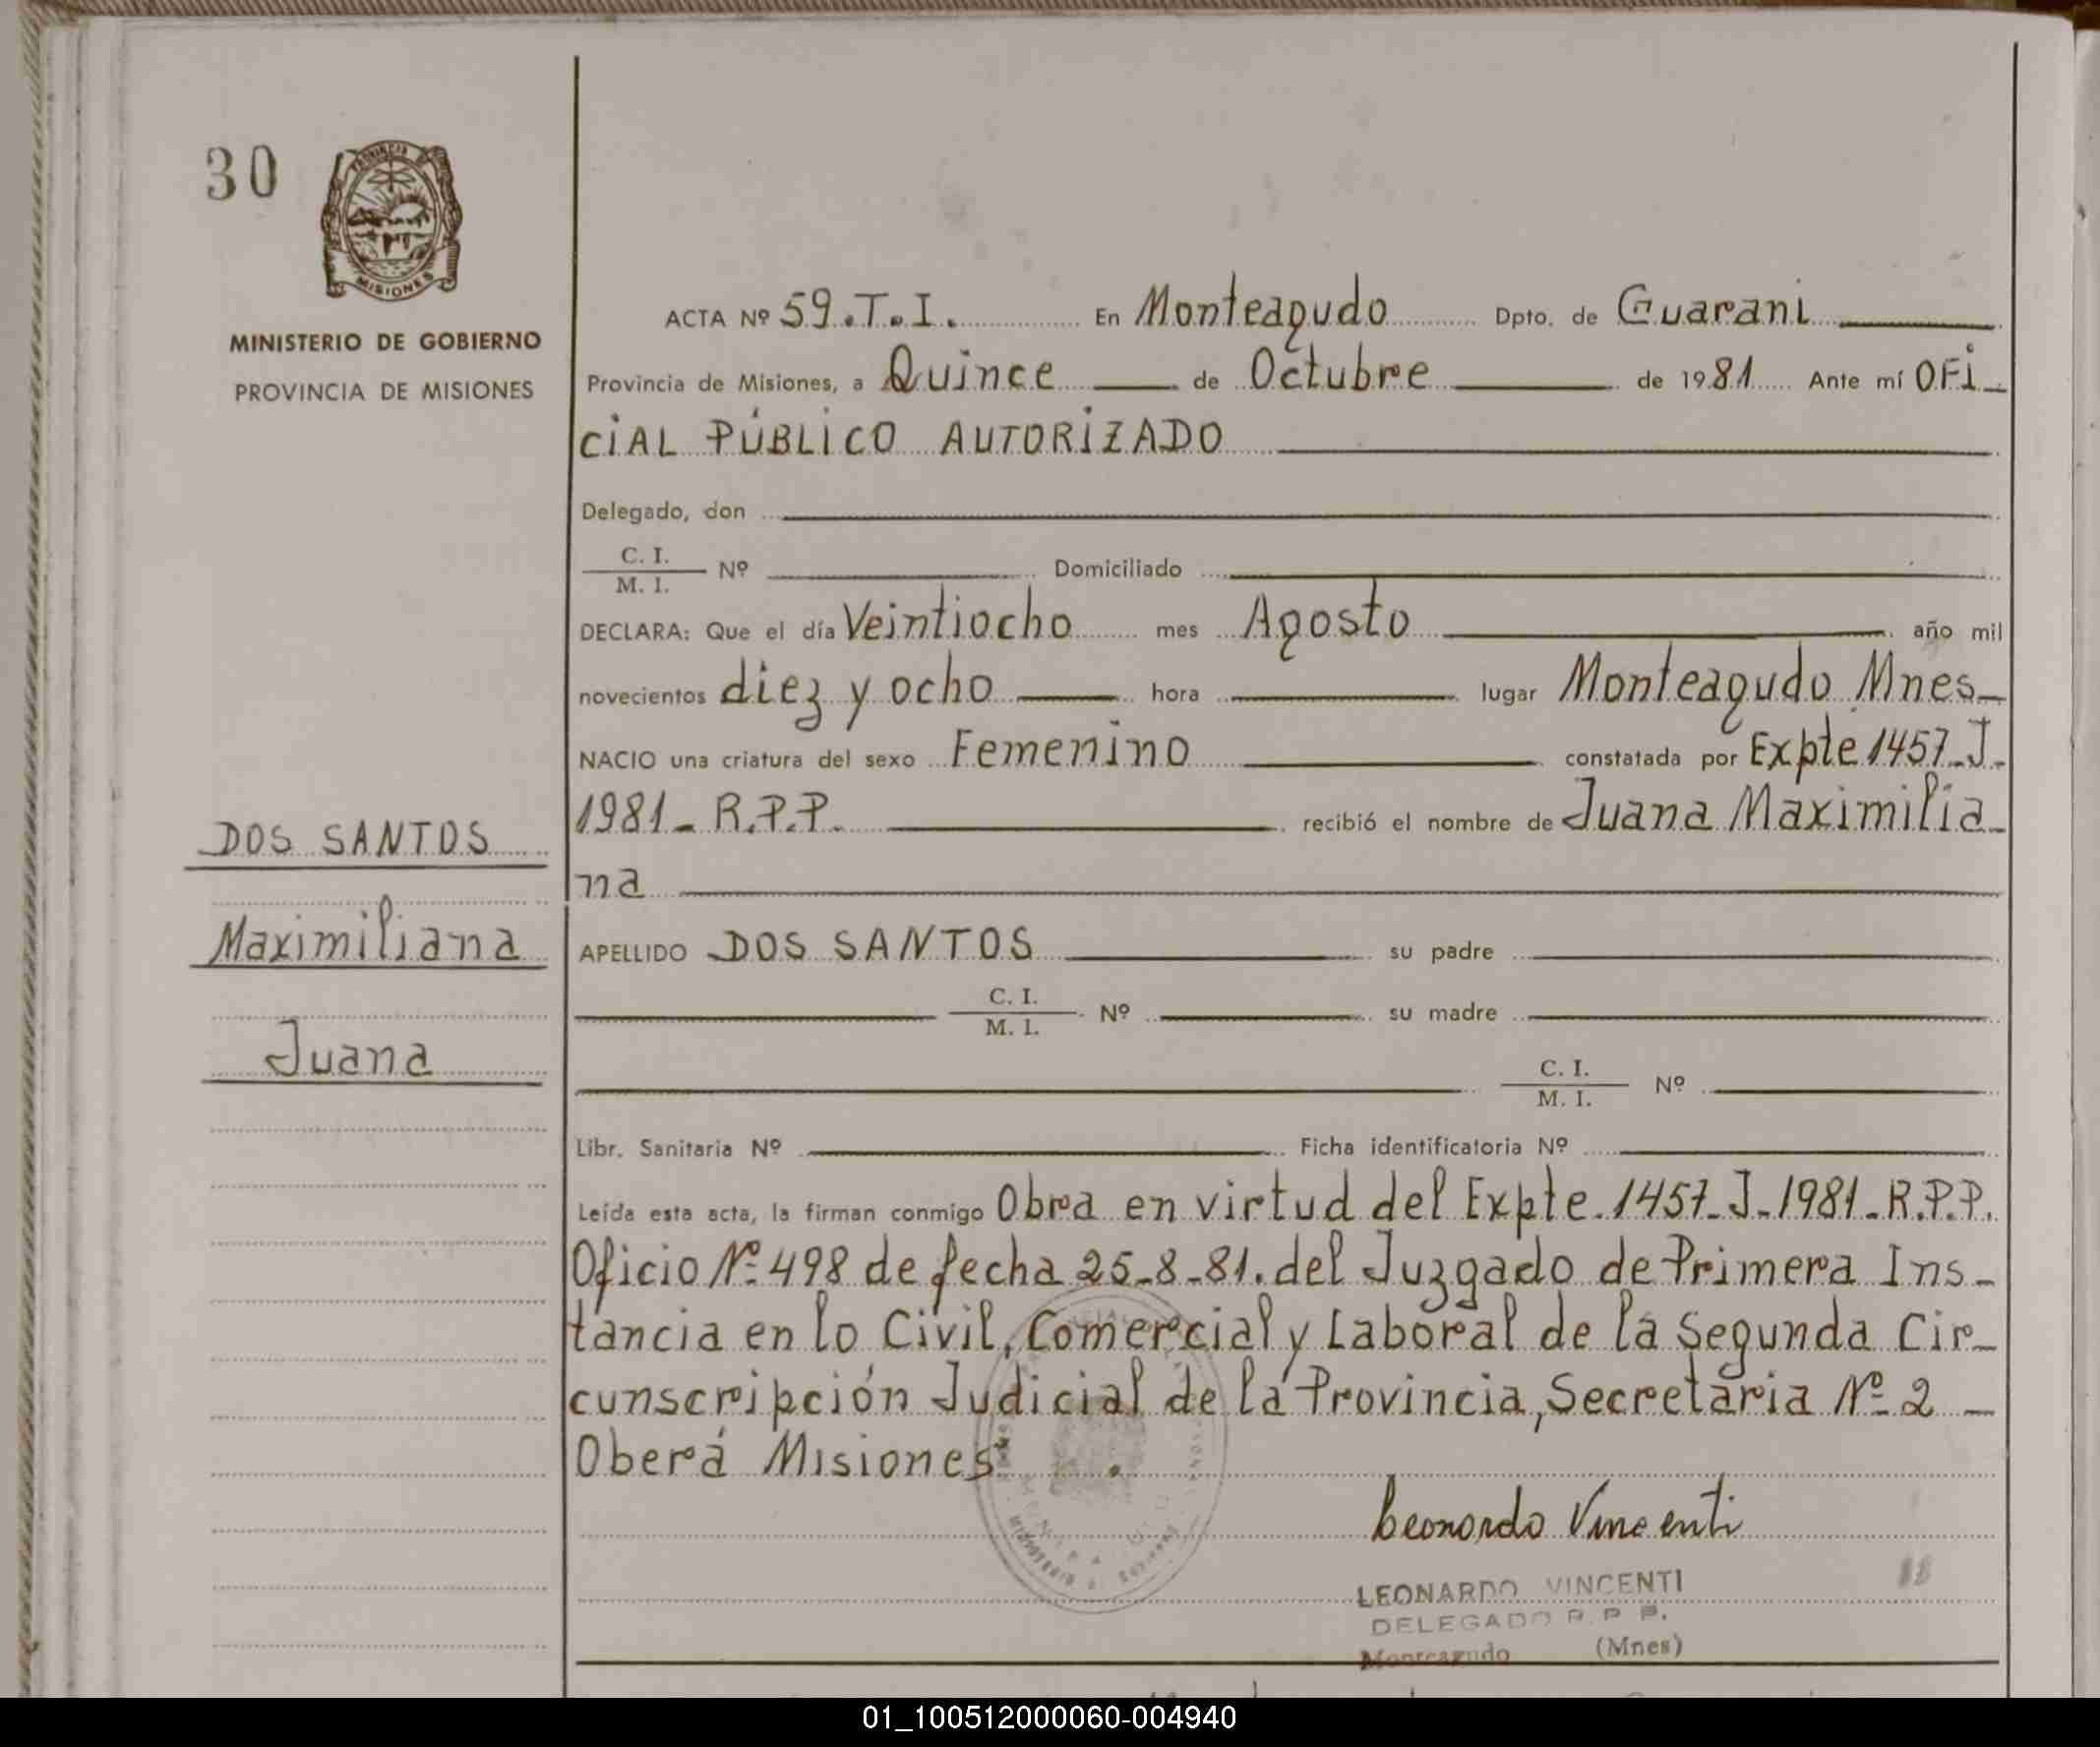 30
PROVINCIA DE
MISIONES
MINISTERIO DE GOBIERNO
PROVINCIA DE MISIONES
DOS SANTOS
Maximiliana
Juana
ACTA Nº 59.T.I. En Monteagudo Dpto. de Guarani
Provincia de Misiones, a Quince de Octubre de 1981 Ante mí OFi
CiAL PÚBLiCO AUTORiZADO
Delegado, don
C. I.
M. I. Nº Domiciliado
DECLARA: Que el día Veintiocho mes Agosto año mil
novecientos diez y ocho hora lugar Monteagudo Mnes
NACIO una criatura del sexo Femenino constatada por Expte 1457-J-
1981- R.P.P. recibió el nombre de Juana Maximilia
na
APELLIDO DOS SANTOS su padre
C. I.
M. I. Nº su madre
C. I.
M. I. Nº
Libr. Sanitaria Nº Ficha identificatoria Nº
Leída esta acta, la firman conmigo Obra en virtud del Expte-1457-J-1981-R.P.P.
Oficio Nº 498 de fecha 25-8-81. del Juzgado de Primera Ins-
tancia en lo Civil, Comercial y Laboral de la Segunda Cir-
cunscripción Judicial de la Provincia, Secretaria Nº 2 -
Oberá Misiones
Leonardo Vincenti
LEONARDO VINCENTI
DELEGADO R. P. P.
Monteagudo (Mnes)
01_100512000060-004940